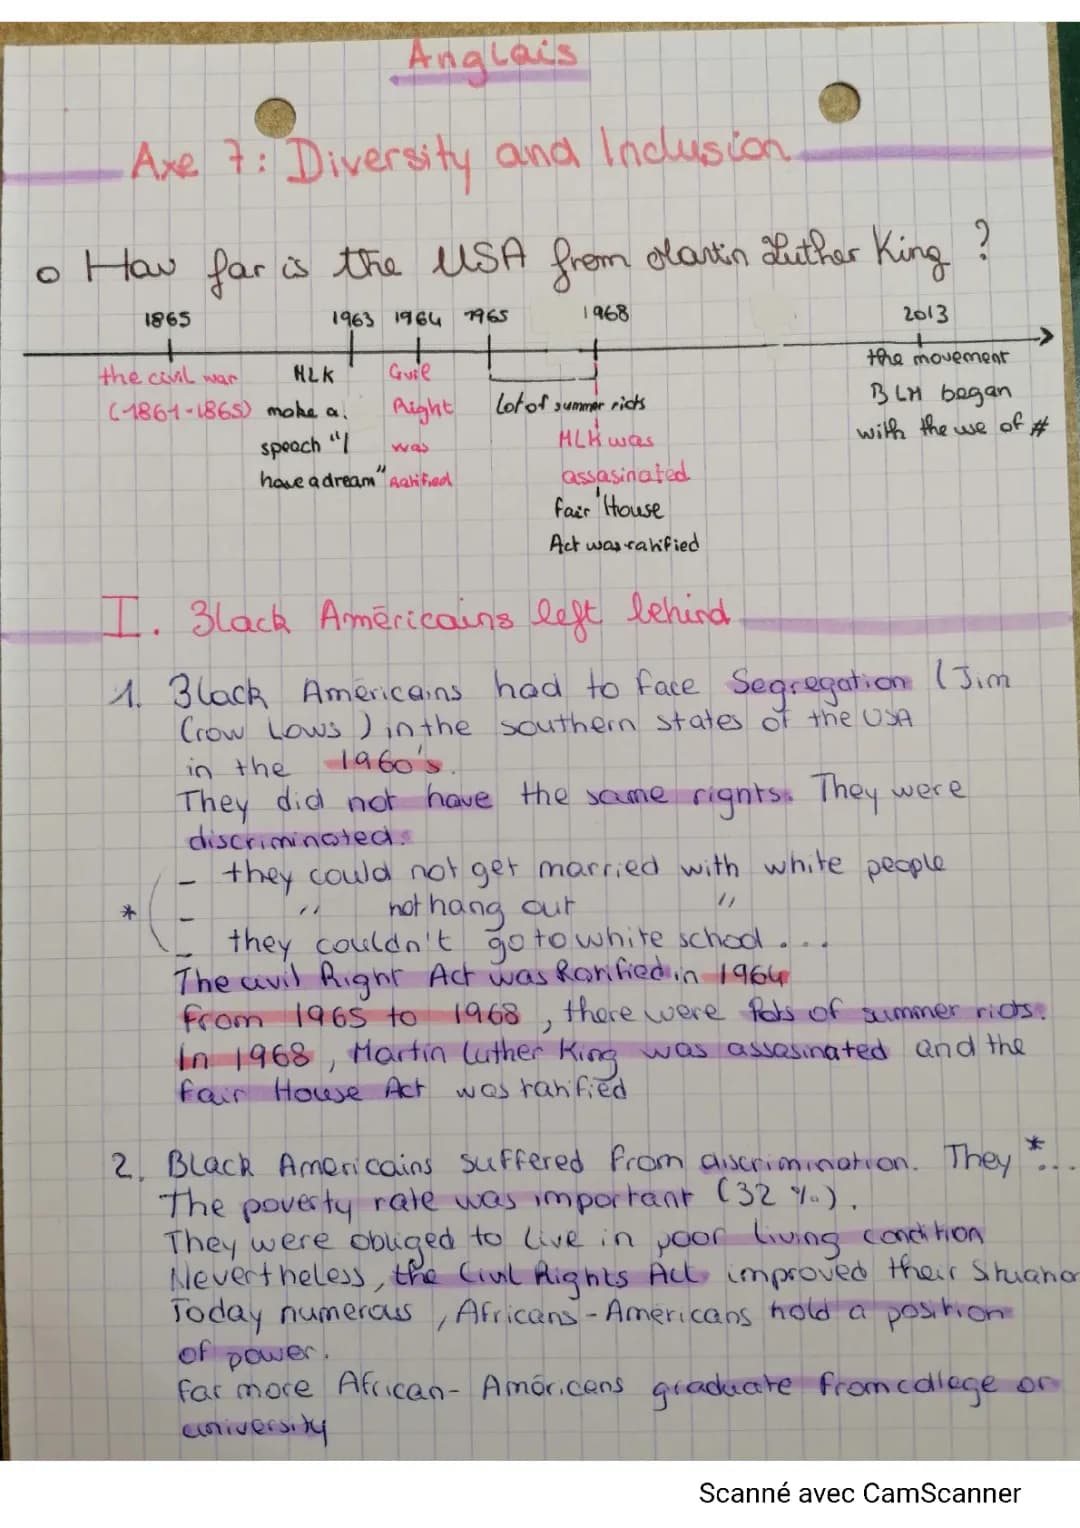 Anglais
Axe 7: Diversity and Inclusion
o How far is the USA from Martin Luther King ?
1865 1963 1964 1965 1968 2013
the civil war
(1861-1865)
MLK
make a
speech "I
have a dream"
Civil
Right
was
Ratified
Lot of summer riots
MLK was
assasinated
fair House
Act was ratified
the movement
BLM began
with the use of #
I. Black Américains left behind
1. Black Américains had to face Segregation (Jim
Crow Laws) in the southern states of the USA
in the 1960's.
They did not have the same rights. They were
discriminated.
- they could not get married with white people
* - " not hang out "
- they couldn't go to white school ...
The civil Right Act was Ratified in 1964
From 1965 to 1968, there were lots of summer riots.
In 1968, Martin Luther King was assasinated and the
fair House Act was ratified
2. Black Américains suffered from discrimination. They *...
The poverty rate was important (32 %).
They were obliged to live in poor living condition
Nevertheless, the Civil Rights Act improved their situation
Today numerous, Africans-Américans hold a position
of power.
far more African-Américans graduate from college or
university
Scanné avec CamScanner